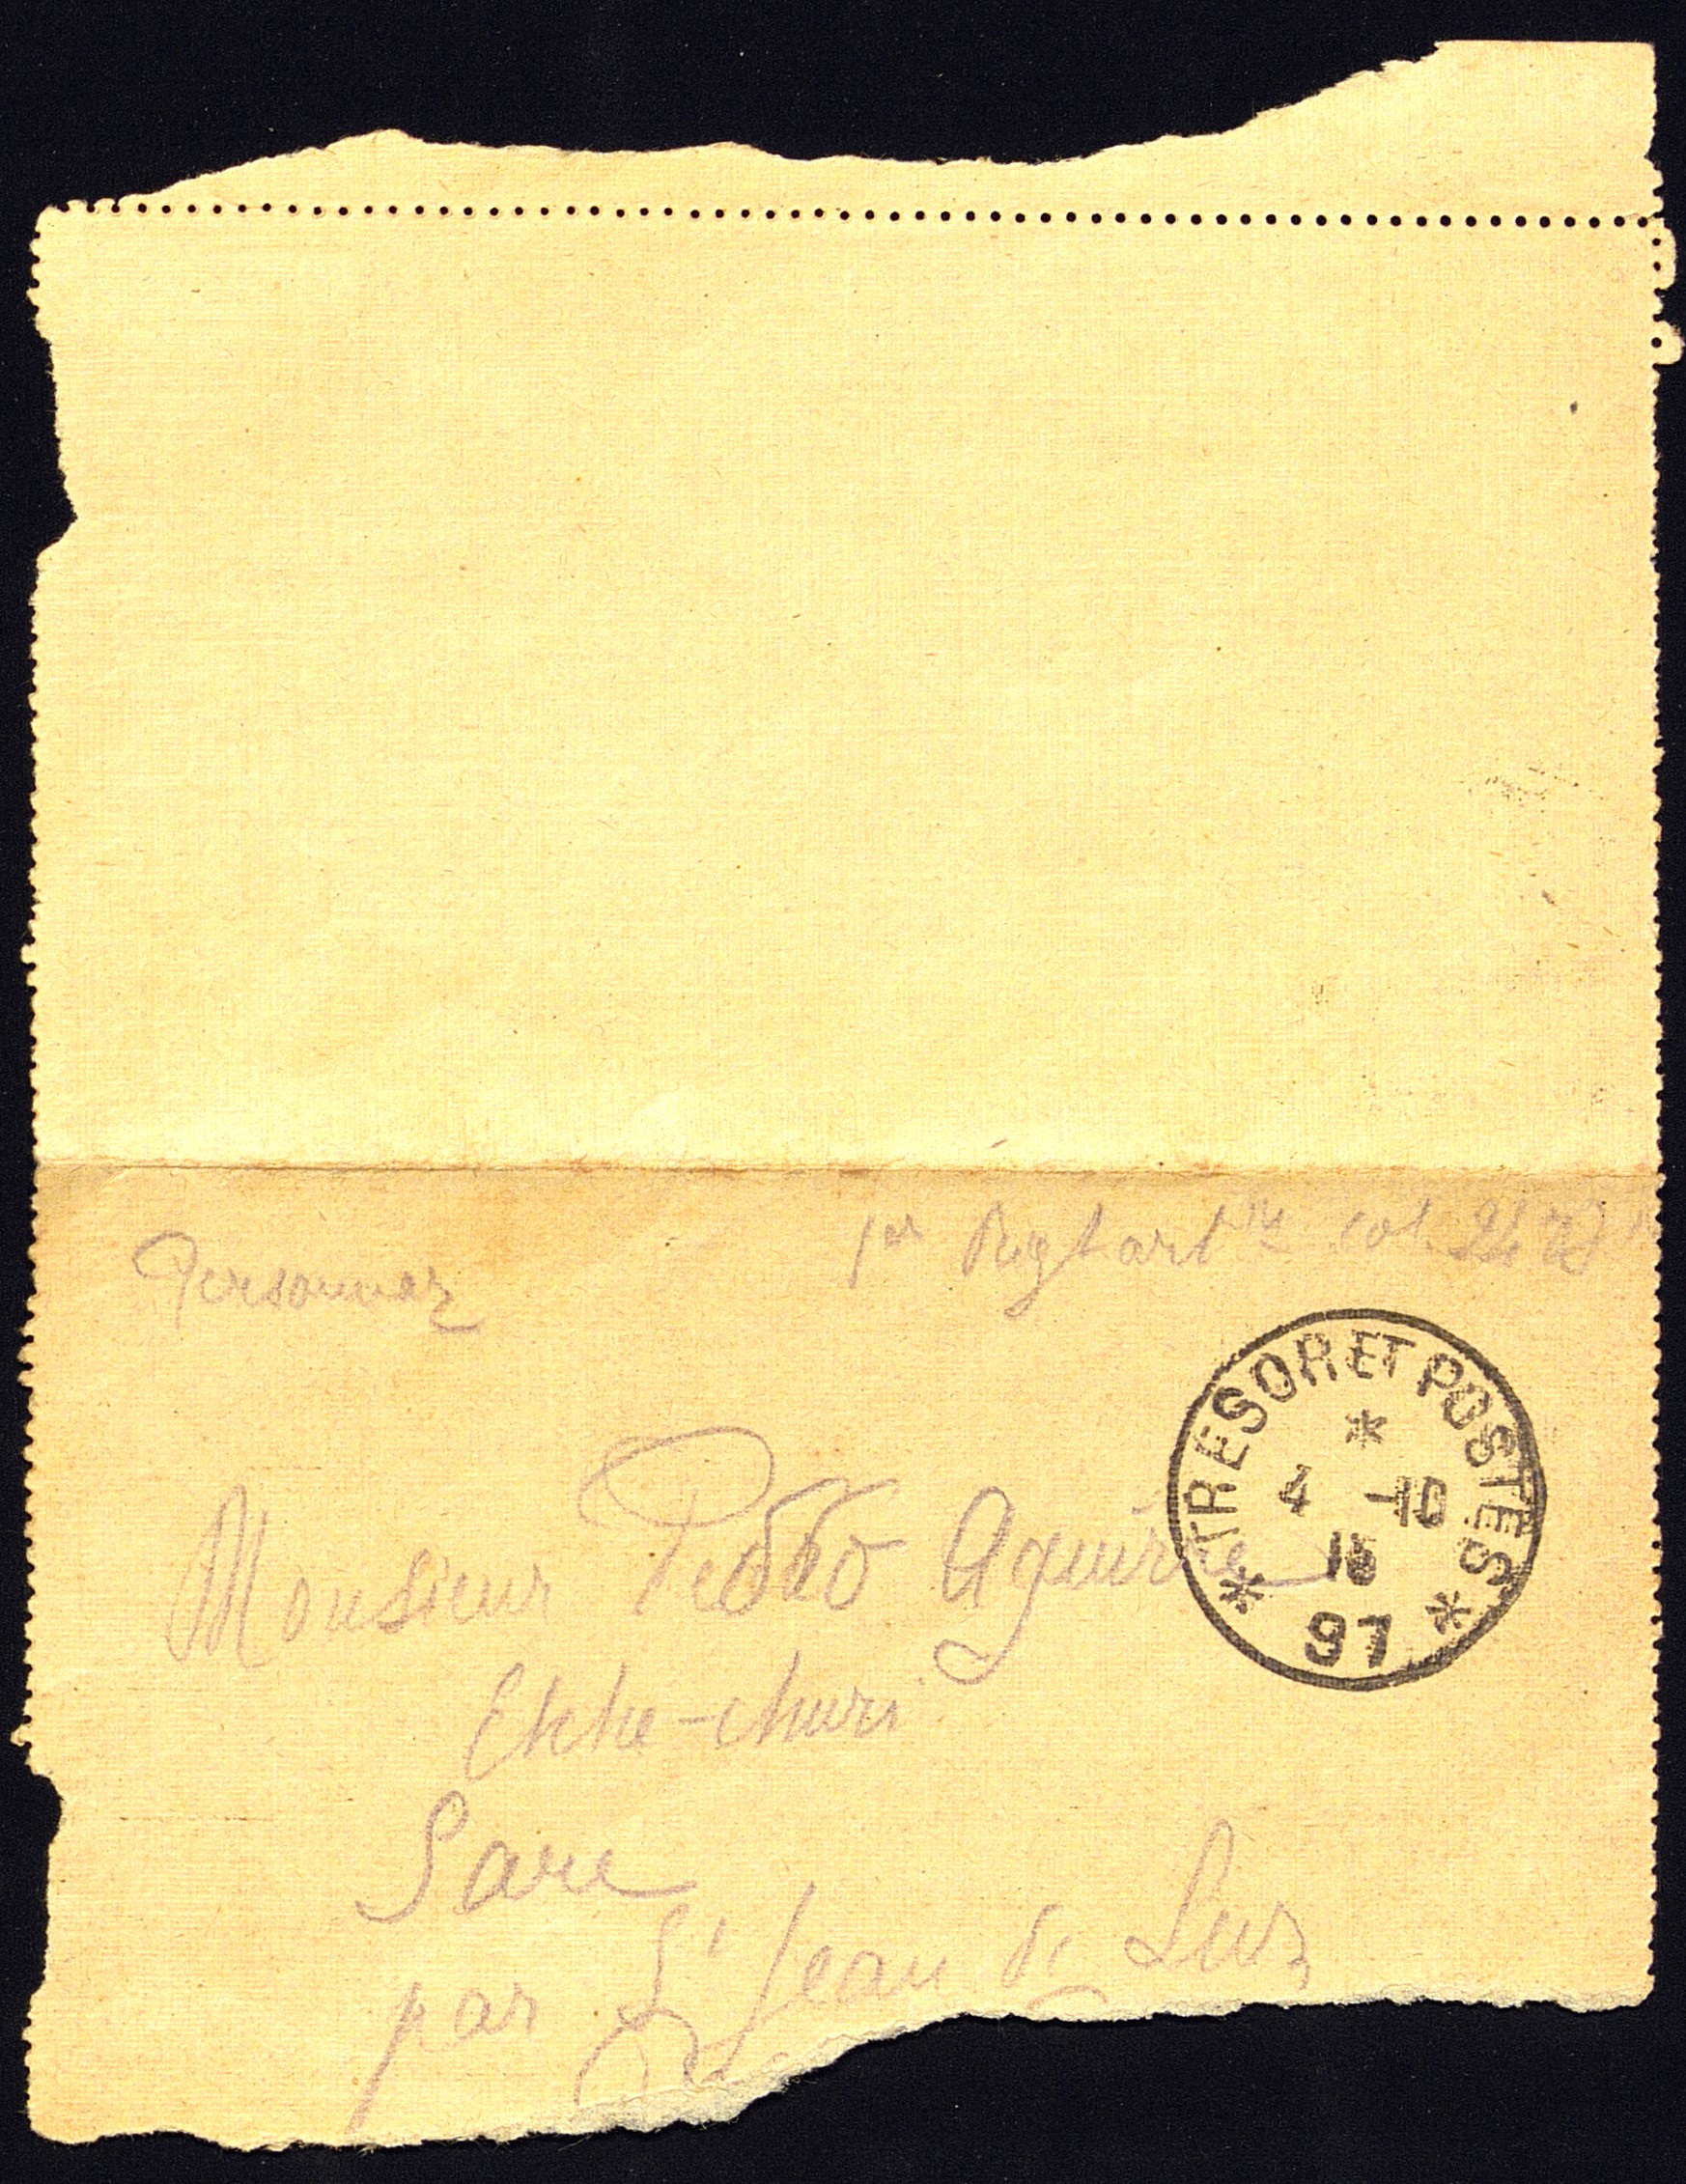 Personnaz
1er Regt artie col.
TRESOR ET POSTES
4 -10
97
Monsieur Pedro Aguirre
Ehhe-churi
Sare
par St Jean de Luz